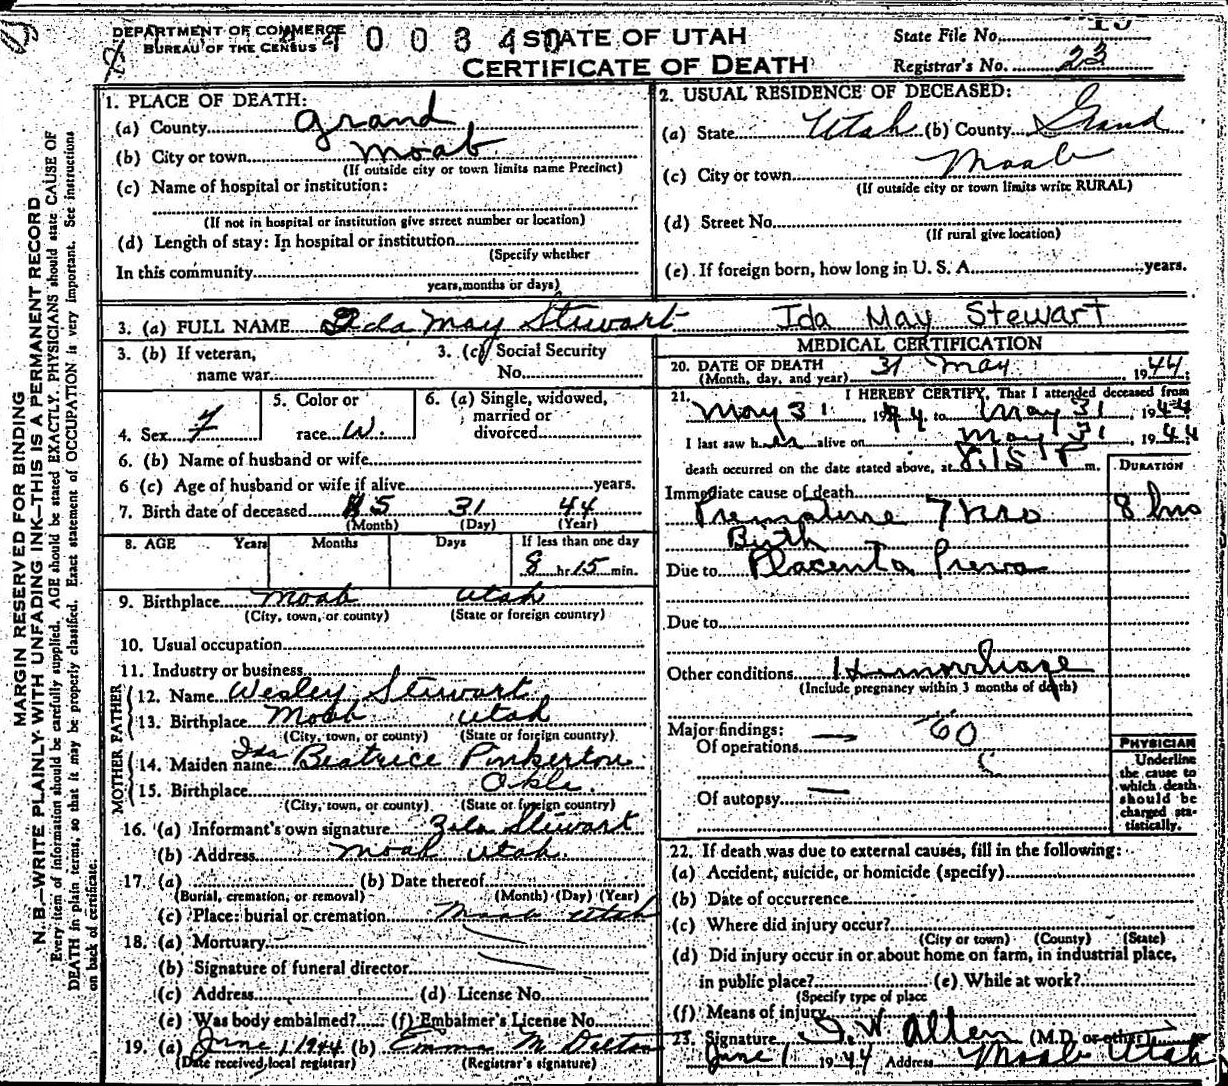 DEPARTMENT OF COMMERCE
BUREAU OF THE CENSUS
STATE OF UTAH
CERTIFICATE OF DEATH
State File No.
Registrar's No. 23
MARGIN RESERVED FOR BINDING
N. B.—WRITE PLAINLY WITH UNFADING INK—THIS IS A PERMANENT RECORD
Every item of information should be carefully supplied. AGE should be stated EXACTLY. PHYSICIANS should state CAUSE OF
DEATH in plain terms, so that it may be properly classified. Exact statement of OCCUPATION is very important. See instructions
on back of certificate.
1. PLACE OF DEATH:
(a) County Grand
(b) City or town Moab
(If outside city or town limits name Precinct)
(c) Name of hospital or institution:
(If not in hospital or institution give street number or location)
(d) Length of stay: In hospital or institution
(Specify whether
In this community
years, months or days)
2. USUAL RESIDENCE OF DECEASED:
(a) State Utah (b) County Grand
(c) City or town Moab
(If outside city or town limits write RURAL)
(d) Street No.
(If rural give location)
(e) If foreign born, how long in U. S. A. years.
3. (a) FULL NAME Ida May Stewart Ida May Stewart
3. (b) If veteran,
name war
3. (c) Social Security
No.
4. Sex F
5. Color or
race W.
6. (a) Single, widowed,
married or
divorced
6. (b) Name of husband or wife
6 (c) Age of husband or wife if alive years.
7. Birth date of deceased 5 31 44
(Month) (Day) (Year)
8. AGE Years Months Days If less than one day
8 hr 15 min.
9. Birthplace Moab Utah
(City, town, or county) (State or foreign country)
10. Usual occupation
11. Industry or business
FATHER
12. Name Wesley Stewart
13. Birthplace Moab Utah
(City, town, or county) (State or foreign country)
MOTHER
14. Maiden name Ida Beatrice Pinkerton
15. Birthplace Okla.
(City, town, or county) (State or foreign country)
16. (a) Informant's own signature Stewart
(b) Address Moab Utah.
17. (a) (b) Date thereof
(Burial, cremation, or removal) (Month) (Day) (Year)
(c) Place: burial or cremation Moab Utah
18. (a) Mortuary
(b) Signature of funeral director
(c) Address (d) License No.
(e) Was body embalmed? (f) Embalmer's License No.
19. (a) June 1, 1944 (b) Emma M Dalton
(Date received local registrar) (Registrar's signature)
MEDICAL CERTIFICATION
20. DATE OF DEATH 31 May 1944
(Month, day, and year)
21. I HEREBY CERTIFY, That I attended deceased from
May 31, 1944 to May 31, 1944
I last saw her alive on May 31, 1944
death occurred on the date stated above, at 8:15 P m.
DURATION
Immediate cause of death
Premature 7 mos 8 hrs
Birth
Due to Placenta Previa
Due to
Other conditions Hemorrhage
(Include pregnancy within 3 months of death)
Major findings:
Of operations —
Of autopsy —
PHYSICIAN
Underline
the cause to
which death
should be
charged sta-
tistically.
22. If death was due to external causes, fill in the following:
(a) Accident, suicide, or homicide (specify)
(b) Date of occurrence
(c) Where did injury occur?
(City or town) (County) (State)
(d) Did injury occur in or about home on farm, in industrial place,
in public place? (e) While at work?
(Specify type of place
(f) Means of injury
23. Signature Allen (M.D. or other)
June 1 1944 Address Moab Utah